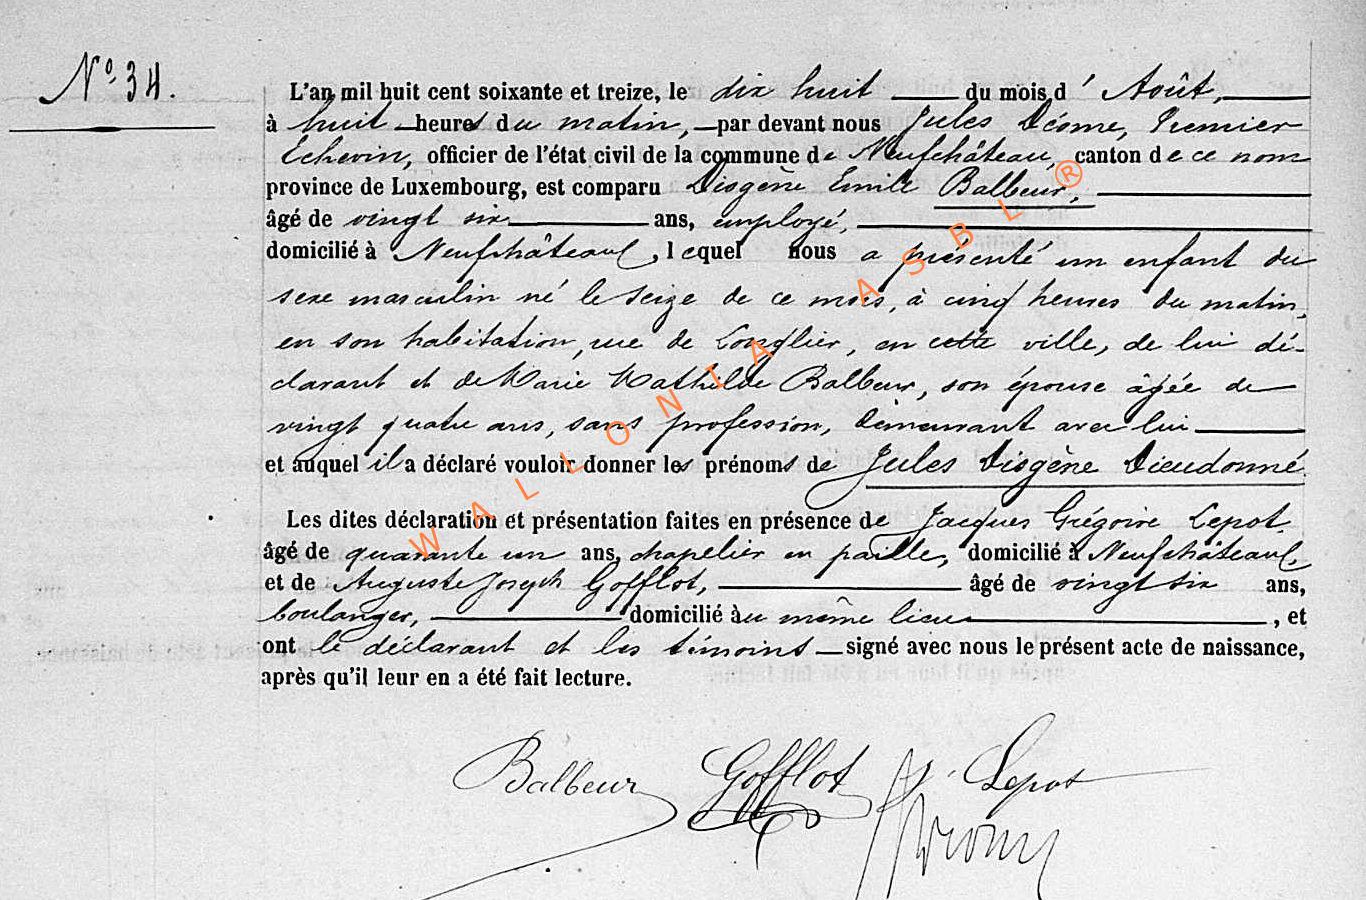 N° 34.
L'an mil huit cent soixante et treize, le dix huit du mois d' Août,
à huit heures du matin, par devant nous Jules Déome, Premier
Échevin, officier de l'état civil de la commune de Neufchâteau, canton de ce nom
province de Luxembourg, est comparu Diogène Emile Balbeur,
âgé de vingt six ans, employé,
domicilié à Neufchâteau, lequel nous a présenté un enfant du
sexe masculin né le seize de ce mois, à cinq heures du matin,
en son habitation, rue de Longlier, en cette ville, de lui dé-
clarant et de Marie Mathilde Balbeur, son épouse âgée de
vingt quatre ans, sans profession, demeurant avec lui
et auquel il a déclaré vouloir donner les prénoms de Jules Diogène Dieudonné.
Les dites déclaration et présentation faites en présence de Jacques Grégoire Lepot
âgé de quarante un ans, chapelier en paille, domicilié à Neufchâteau,
et de Auguste Joseph Gofflot, âgé de vingt six ans,
boulanger, domicilié au même lieu, et
ont le déclarant et les témoins signé avec nous le présent acte de naissance,
après qu'il leur en a été fait lecture.
Balbeur Gofflot J. Lepot
WALLONIA ASBL ®